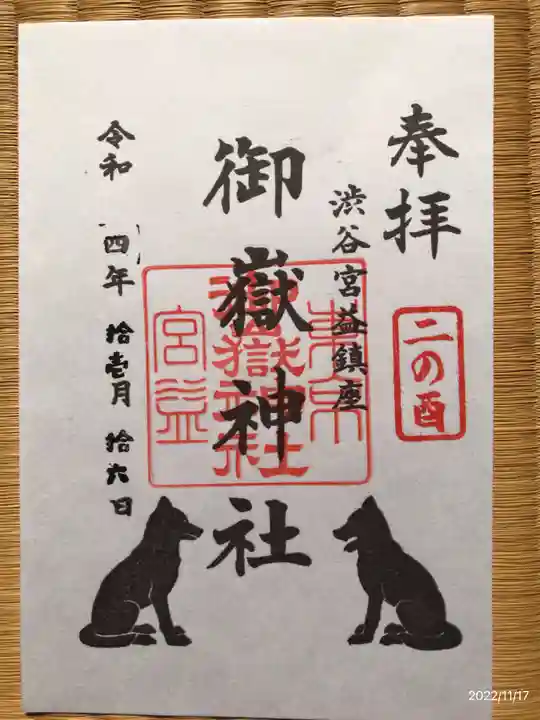 奉拝
二の酉
渋谷宮益鎮座
御嶽神社
東京
御嶽神社
宮益
令和 四年 拾壱月 拾六日
2022/11/17